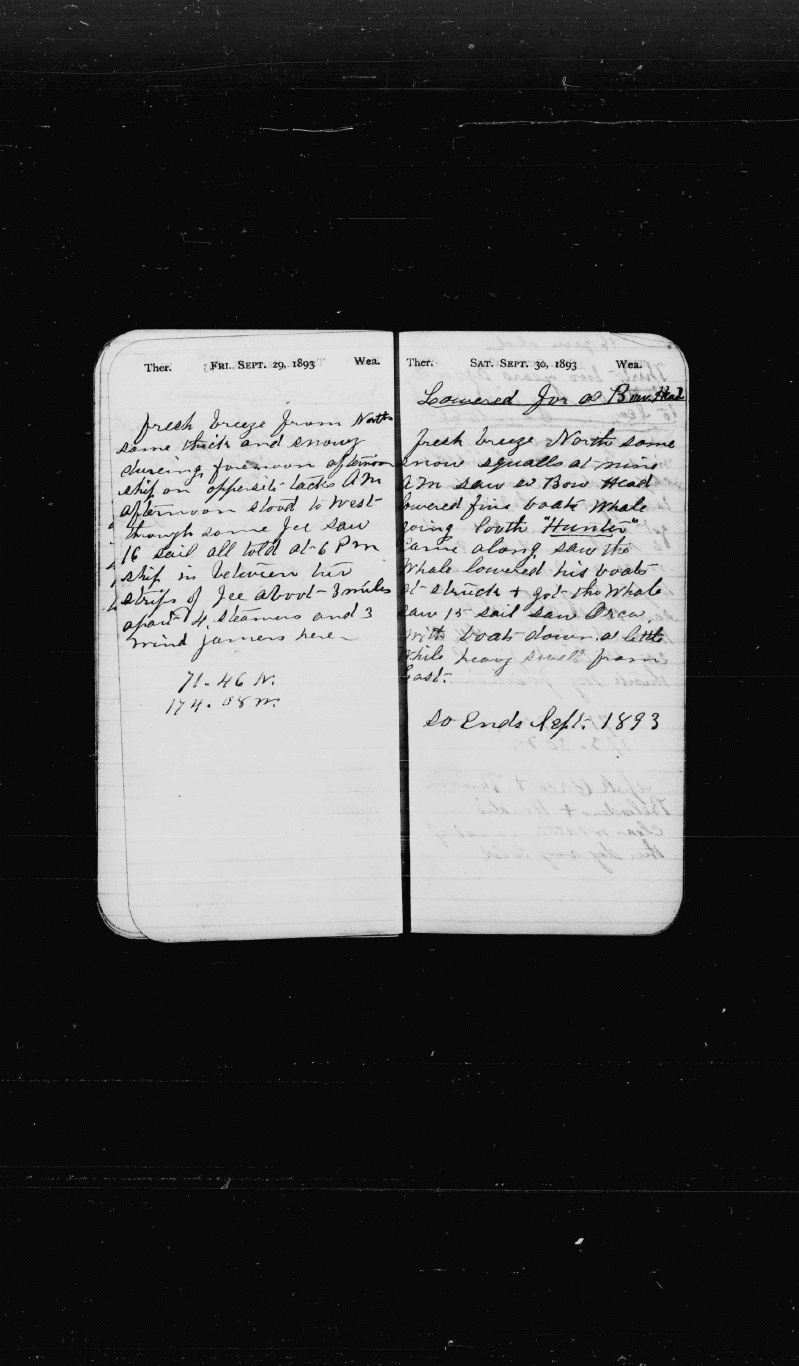 Ther. FRI. SEPT. 29, 1893 Wea.
fresh breeze from North
some thick and snowy
dureing forenoon afternoon
ship on opposite tacks AM
afternoon stood to West
through some Ice saw
16 sail all told at 6 Pm
ship in between two
strips of Ice about 3 miles
apart 4 steamers and 3
wind jamers here
71-46 N.
174-08 W.
Ther. SAT. SEPT. 30, 1893 Wea.
Lowered for a Bow Head
fresh breeze North some
snow squalls at nine
AM saw a Bow Head
lowered five boats Whale
going South "Hunter"
Came along saw the
Whale lowered his boats
struck + got the Whale
saw 15 sail saw Orca
with boats down a little
while heavy swell from
East.
So Ends Sept. 1893